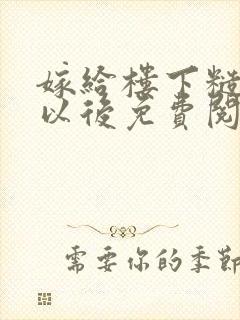 嫁給樓下糙
以後免費閱
需要你的季節